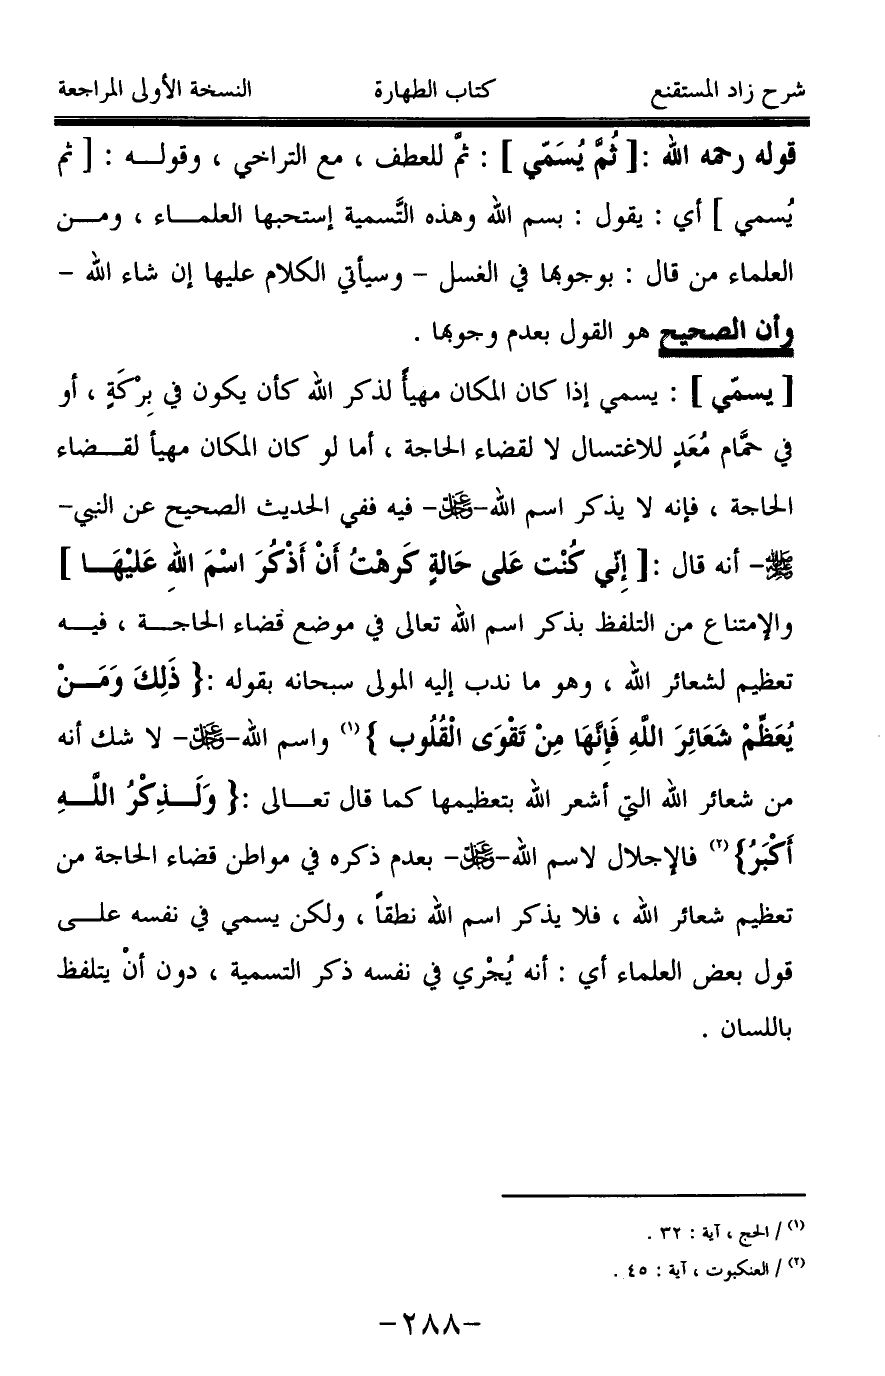 شرح زاد المستقنع كتاب الطهارة النسخة الأولى المراجعة
قوله رحمه الله :[ ثُمَّ يُسَمّي ] : ثمَّ للعطف ، مع التراخي ، وقولـــه : [ ثم
يُسمي ] أي : يقول : بسم الله وهذه التَّسمية إستحبها العلمـــاء ، ومـــن
العلماء من قال : بوجوبها في الغسل – وسيأتي الكلام عليها إن شاء الله –
وأن الصحيح هو القول بعدم وجوبها .
[ يسمّي ] : يسمي إذا كان المكان مهيأً لذكر الله كأن يكون في بِرْكَةٍ ، أو
في حمَّام مُعَدٍ للاغتسال لا لقضاء الحاجة ، أما لو كان المكان مهيأ لقـــضاء
الحاجة ، فإنه لا يذكر اسم الله-عَجَلّ- فيه ففي الحديث الصحيح عن النبي-
ﷺ- أنه قال :[ إِنّي كُنْت عَلى حَالةٍ كَرهْتُ أَنْ أَذْكُرَ اسْمَ اللهِ عَليْهَـــا ]
والإمتناع من التلفظ بذكر اسم الله تعالى في موضع قضاء الحاجـــة ، فيـــه
تعظيم لشعائر الله ، وهو ما ندب إليه المولى سبحانه بقوله :{ ذَلِكَ وَمَـــنْ
يُعَظِّمْ شَعَائِرَ اللَّهِ فَإِنَّهَا مِنْ تَقْوَى الْقُلُوبِ }(١) واسم الله-عَجَلّ- لا شك أنه
من شعائر الله التي أشعر الله بتعظيمها كما قال تعـــالى :{ وَلَـــذِكْرُ اللَّـــهِ
أَكْبَرُ}(٢) فالإجلال لاسم الله-عَجَلّ- بعدم ذكره في مواطن قضاء الحاجة من
تعظيم شعائر الله ، فلا يذكر اسم الله نطقاً ، ولكن يسمي في نفسه علـــى
قول بعض العلماء أي : أنه يُجْري في نفسه ذكر التسمية ، دون أنْ يتلفظ
باللسان .
(١) / الحج ، آية : ٣٢ .
(٢) / العنكبوت ، آية : ٤٥ .
-٢٨٨-